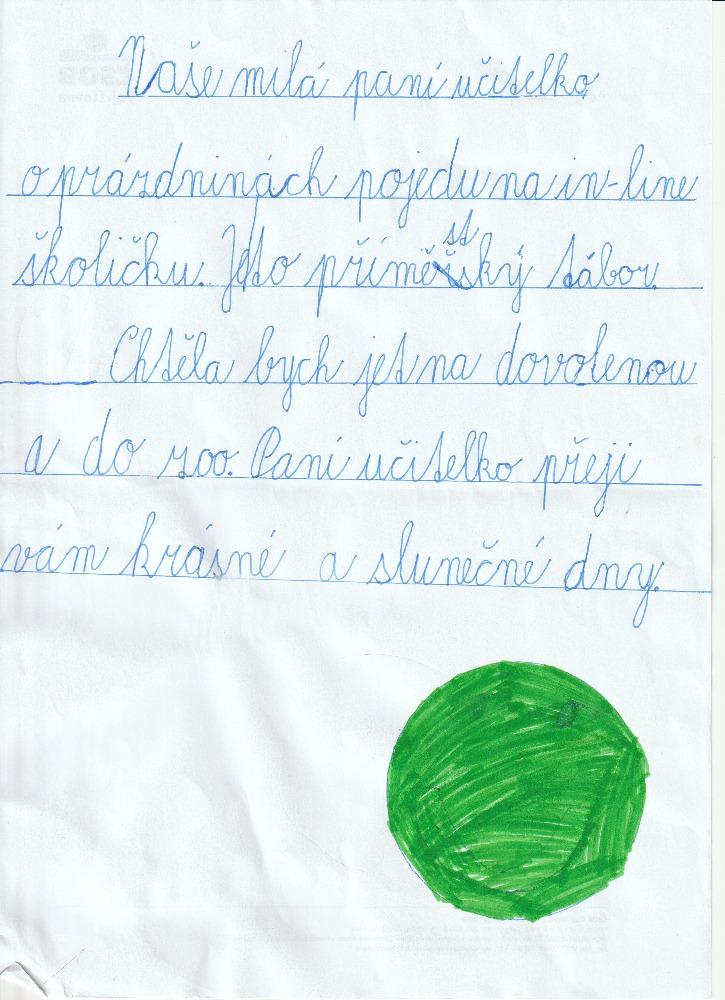 Naše milá paní učitelko,
o prázdninách pojedu na in-line
školičku. Je to příměstský tábor.
Chtěla bych jet na dovolenou
a do zoo. Paní učitelko přeji
vám krásné a slunečné dny.